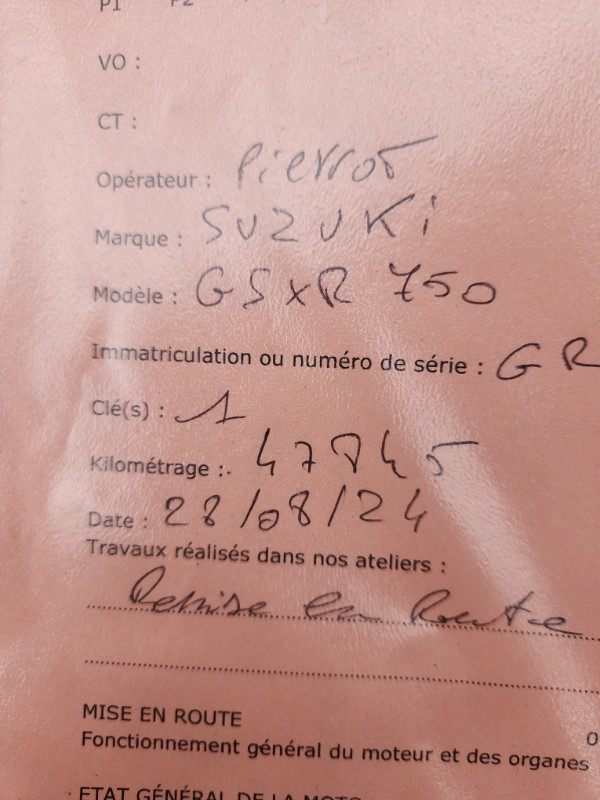 P1 P2
VO :
CT :
Opérateur : Pierrot
Marque : SUZUKi
Modèle : GSXR 750
Immatriculation ou numéro de série : GR
Clé(s) : 1
Kilométrage :.
Date : 28/08/24
Travaux réalisés dans nos ateliers :
Remise en Route
MISE EN ROUTE
0
Fonctionnement général du moteur et des organes
ETAT GÉNÉRAL DE LA MOTO